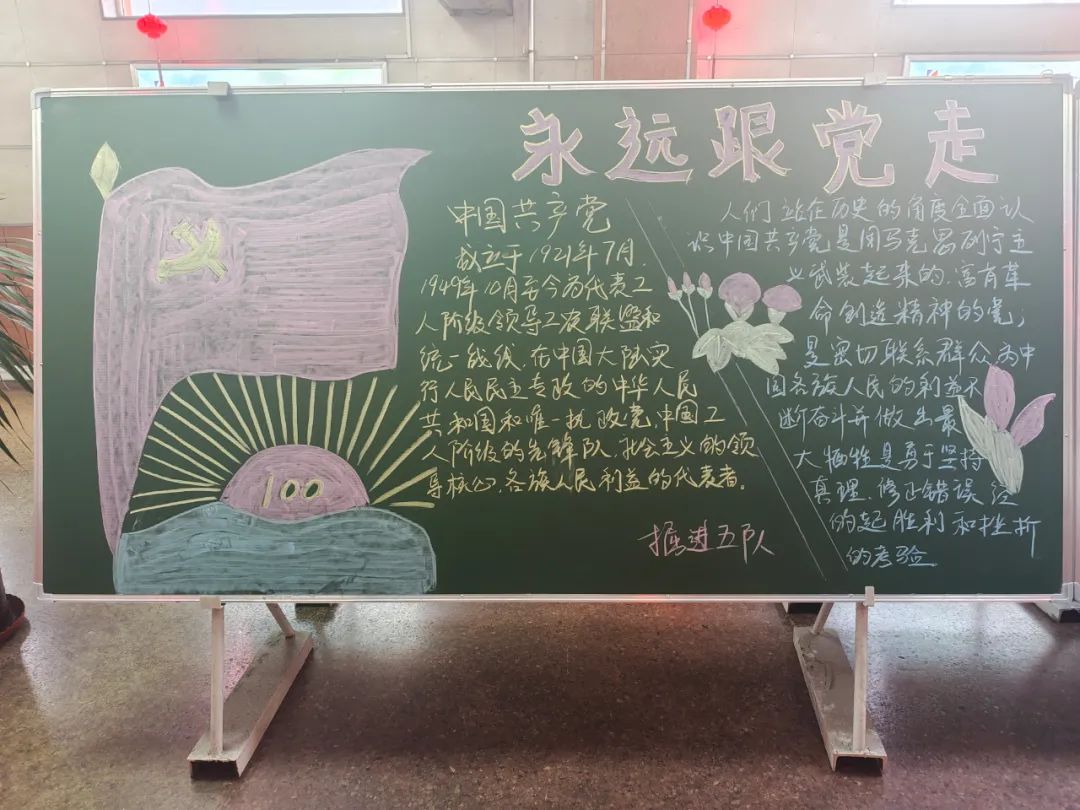 永远跟党走
中国共产党
成立于1921年7月.
1949年10月至今为代表工
人阶级领导工农联盟和
统一战线,在中国大陆实
行人民民主专政的中华人民
共和国和唯一执政党,中国工
人阶级的先锋队、社会主义的领
导核心,各族人民利益的代表者。
掘进五队
人们站在历史的角度全面认
识中国共产党是用马克思列宁主
义武装起来的,富有革
命创造精神的党;
是密切联系群众为中
国各族人民的利益不
断奋斗并做出最
大牺牲是勇于坚持
真理、修正错误经
的起胜利和挫折
的考验
100